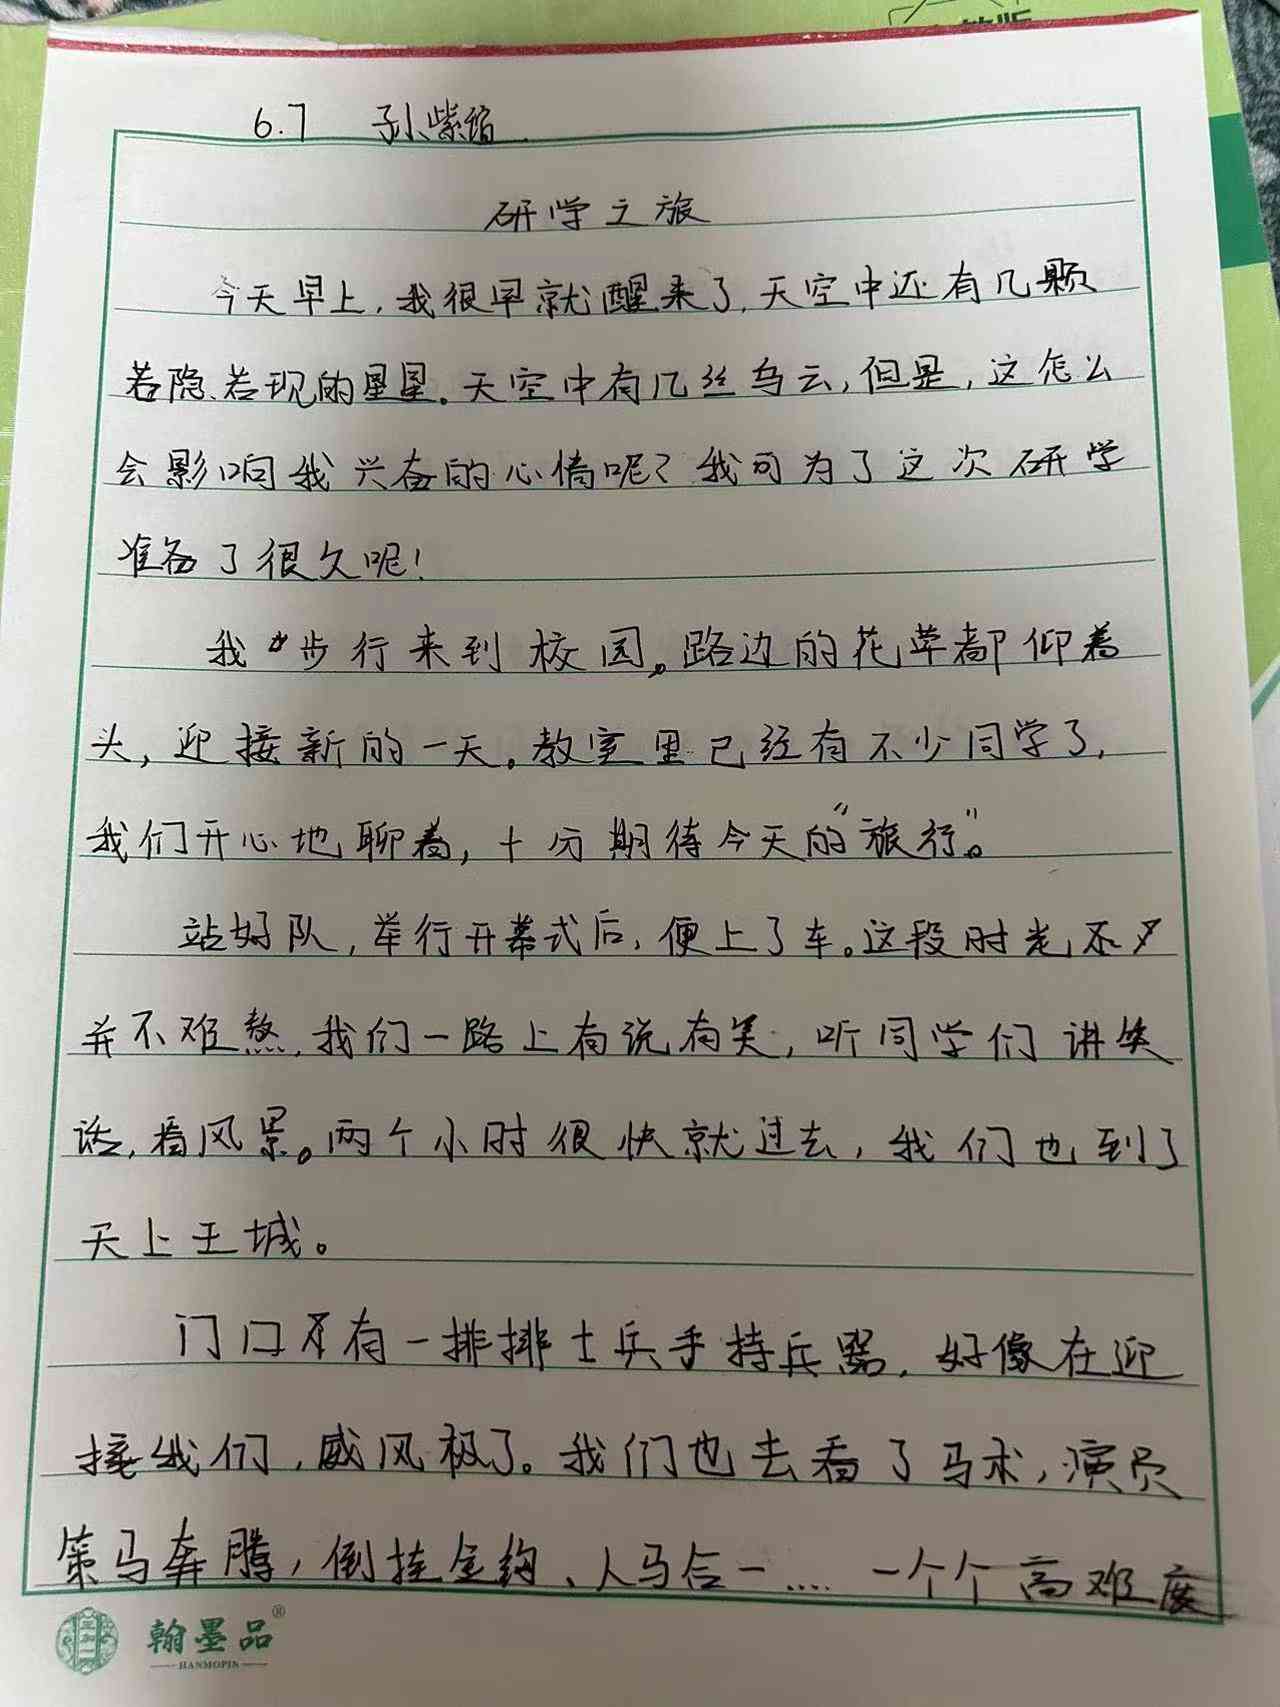 6.7 孙紫
研学之旅
今天早上,我很早就醒来了,天空中还有几颗
若隐若现的星星。天空中有几丝乌云,但是,这怎么
会影响我兴奋的心情呢?我可为了这次研学
准备了很久呢!
我步行来到校园。路边的花草都仰着
头,迎接新的一天。教室里已经有不少同学了,
我们开心地聊着,十分期待今天的“旅行”。
站好队,举行开幕式后,便上了车。这段时光
并不难熬,我们一路上有说有笑,听同学们讲笑
话,看风景。两个小时很快就过去,我们也到了
天上王城。
门口有一排排士兵手持兵器,好像在迎
接我们,威风极了。我们也去看了马术,演员
策马奔腾,倒挂金钩、人马合一……一个个高难度
翰墨品®
HANMOPIN